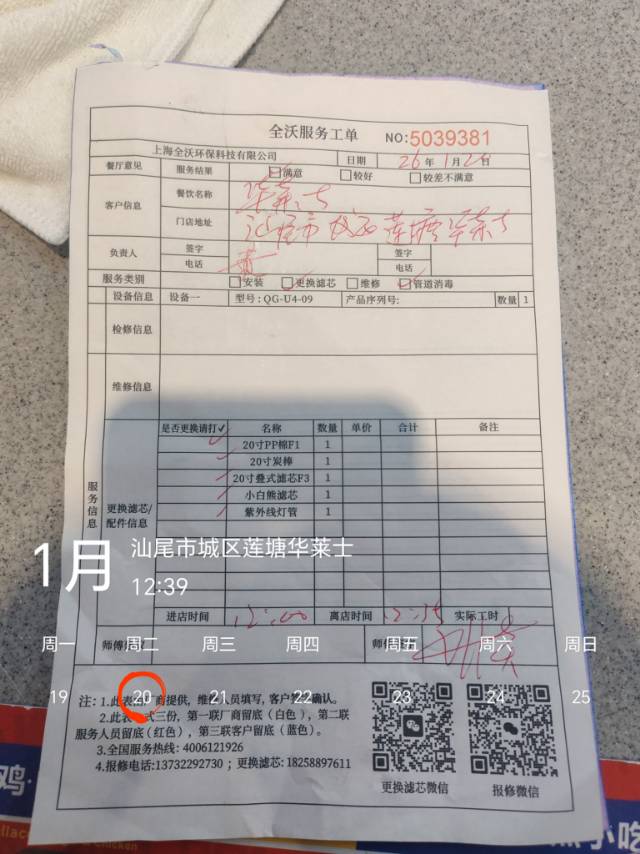 全沃服务工单 NO:5039381
上海全沃环保科技有限公司 日期 26年1月20日
餐厅意见 服务结果 满意 较好 较差不满意
客户信息 餐饮名称 华莱士
门店地址 汕尾市城区莲塘华莱士
负责人 签字 签字
电话 电话
服务类别 安装 更换滤芯 维修 管道消毒
设备信息 设备一 型号:QG-U4-09 产品序列号: 数量 1
检修信息
维修信息
是否更换请打✓ 名称 数量 单价 合计 备注
✓ 20寸PP棉F1 1
✓ 20寸炭棒 1
✓ 20寸叠式滤芯F3 1
✓ 小白熊滤芯 1
✓ 紫外线灯管 1
服务信息
更换滤芯/配件信息
1月 汕尾市城区莲塘华莱士
12:39
进店时间 12:00 离店时间 12:35 实际工时
周一 周二 周三 周四 周五 周六 周日
19 20 21 22 23 24 25
注：1.此表由厂商提供，维修人员填写，客户签字确认。
2.此表一式三份，第一联厂商留底（白色），第二联
服务人员留底（红色），第三联客户留底（蓝色）。
3.全国服务热线：4006121926
4.报修电话:13732292730；更换滤芯:18258897611
更换滤芯微信 报修微信